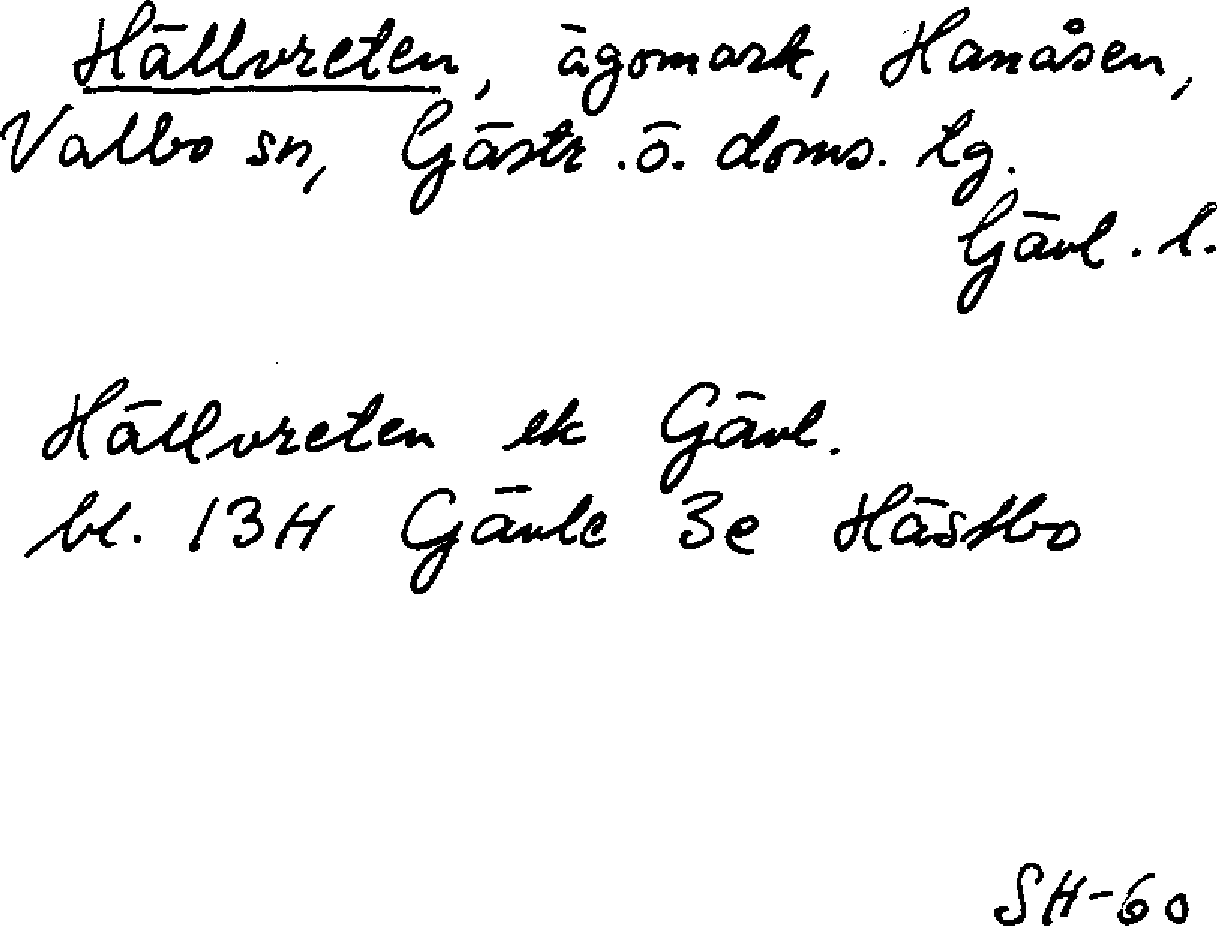 Hällvreten, ägomark, Hanåsen,
Valbo sn, Gästr. ö. doms. lg.
Gävl. l.
Hällvreten ek Gävl.
bl. 13H Gävle 3e Hästbo
SH-60